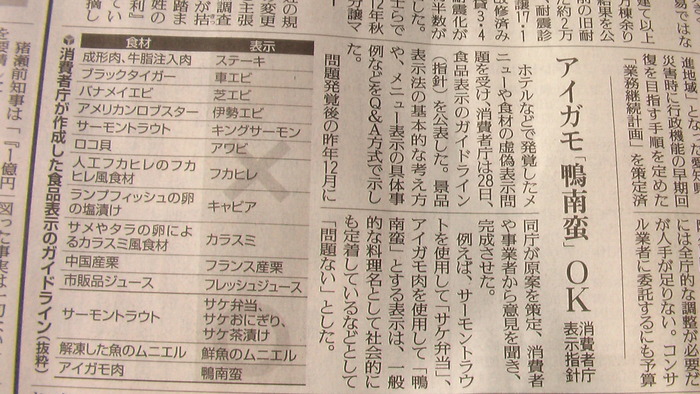 進地域」となった愛知県
災害時に行政機能の早期回
復を目指す手順を定めた
「業務継続計画」を策定済
には全庁的な調整が必要だ
が人手が足りない。コンサ
ル業者に委託するにも予算
アイガモ「鴨南蛮」OK
消費者庁
表示指針
ホテルなどで発覚したメ
ニューや食材の虚偽表示問
題を受け、消費者庁は28日、
食品表示のガイドライン
(指針)を公表した。景品
表示法の基本的な考え方
や、メニュー表示の具体事
例などをQ&A方式で示し
た。
問題発覚後の昨年12月に
同庁が原案を策定、消費者
や事業者から意見を聞き、
完成させた。
例えば、サーモントラウ
トを使用して「サケ弁当」、
アイガモ肉を使用して「鴨
南蛮」とする表示は、一般
的な料理名として社会的に
も定着しているなどとして
「問題ない」とした。
消費者庁が作成した食品表示のガイドライン(抜粋)
食材 表示
成形肉、牛脂注入肉 ステーキ
ブラックタイガー 車エビ
バナメイエビ 芝エビ
アメリカンロブスター 伊勢エビ
サーモントラウト キングサーモン
ロコ貝 アワビ
人工フカヒレのフカ
ヒレ風食材 フカヒレ
ランプフィッシュの卵
の塩漬け キャビア
サメやタラの卵によ
るカラスミ風食材 カラスミ
中国産栗 フランス産栗
市販品ジュース フレッシュジュース
サーモントラウト サケ弁当、
サケおにぎり、
サケ茶漬け
解凍した魚のムニエル 鮮魚のムニエル
アイガモ肉 鴨南蛮
×
○
猪瀬前知事は「『1億円